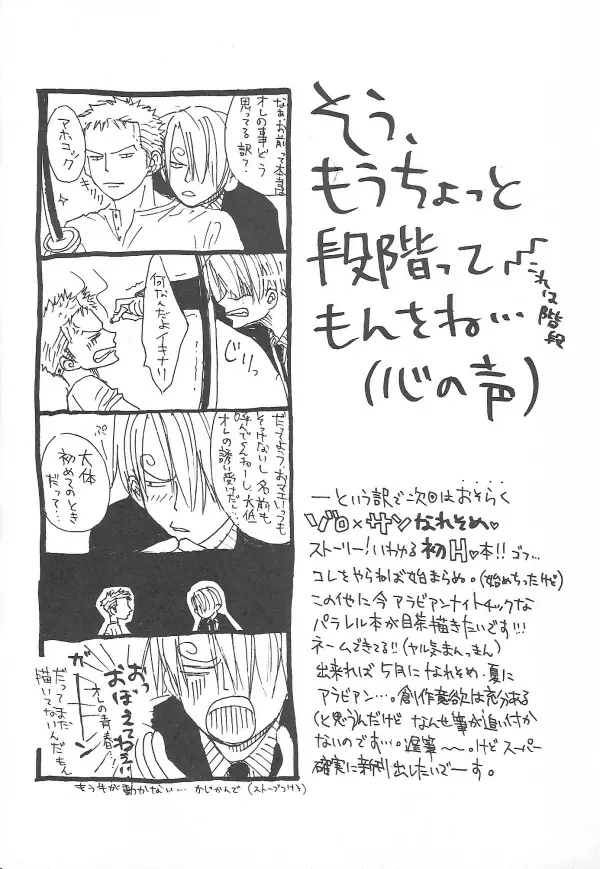 そう、
もうちょっと
段階って
もんをね…
(心の声)
これは階段
なぁお前って本当は
オレの事どう
思ってる訳?
アホコック
何なんだよイキナリ
じりっ
だってよう、おマエいつも
そっけないし名前も
呼んでくんねーし、大体
オレの誘い受けだし…
ぷ
大体
初めてのとき
だって…
おっ
おぼえてねぇ!!
オレの青春…
ガーーン
だってまだ
描いてないんだもん
もう手が動かない… かじかんで (ストーブつけろ)
―という訳で次回はおそらく
ゾロ×サンなれそめ♥
ストーリー!いわゆる初H♥本!!ゴフ…
コレをやらねば始まらぬ。(始めちったけど)
この他に今アラビアンナイトチックな
パラレル本が目茶描きたいです!!!
ネームできてる!!(ヤル気まんまん)
出来れば5月になれそめ・夏に
アラビアン…。創作意欲は充分ある
(と思う)んだけどなんせ筆が追い付か
ないのです…。遅筆〜〜。けどスーパー
確実に新刊出したいでーす。